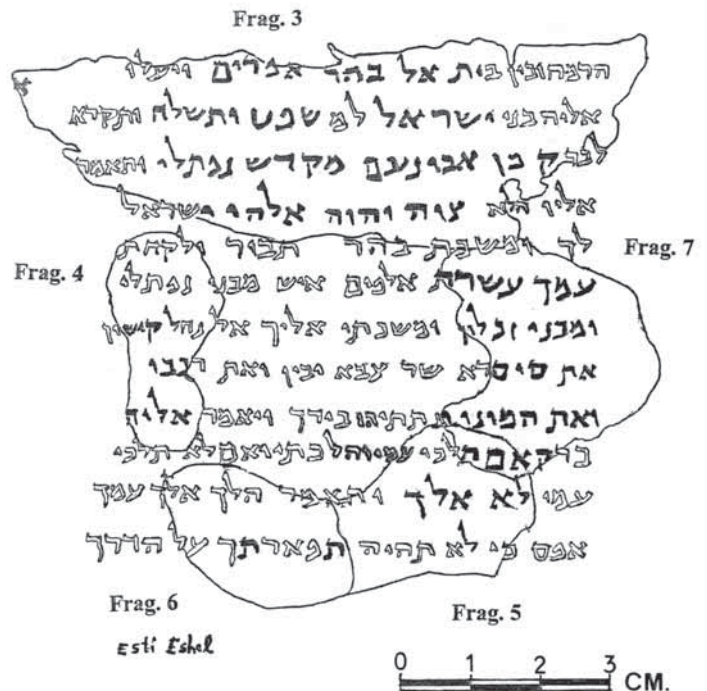 Frag. 3
הרמהובין בית אל בהר אפרים ויעלו
אליה בני ישראל למשפט ותשלח ותקרא
לברק בן אבינעם מקדש נפתלי ותאמר
אליו הלא צוה יהוה אלהי ישראל
לך ומשכת בהר תבור ולקחת
Frag. 7
Frag. 4
עמך עשרת אלפים איש מבני נפתלי
ומבני זבלון ומשכתי אליך אל נחל קישון
את סיסרא שר צבא יבין ואת רכבו
ואת המונו ונתתיהו בידך ויאמר אליה
ברק אם תלכי עמי והלכתי ואם לא תלכי
עמי לא אלך ותאמר הלך אלך עמך
אפס כי לא תהיה תפארתך על הדרך
Frag. 6
Frag. 5
Esti Eshel
0 1 2 3 CM.